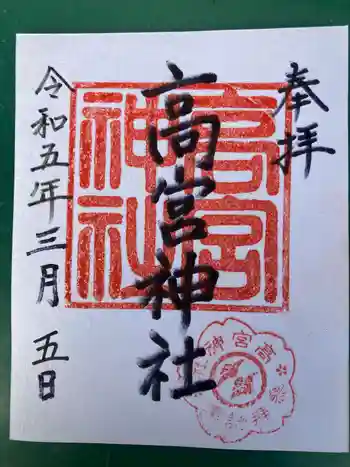 奉拝
高宮神社
令和五年三月五日
高宮
神社
高宮神社